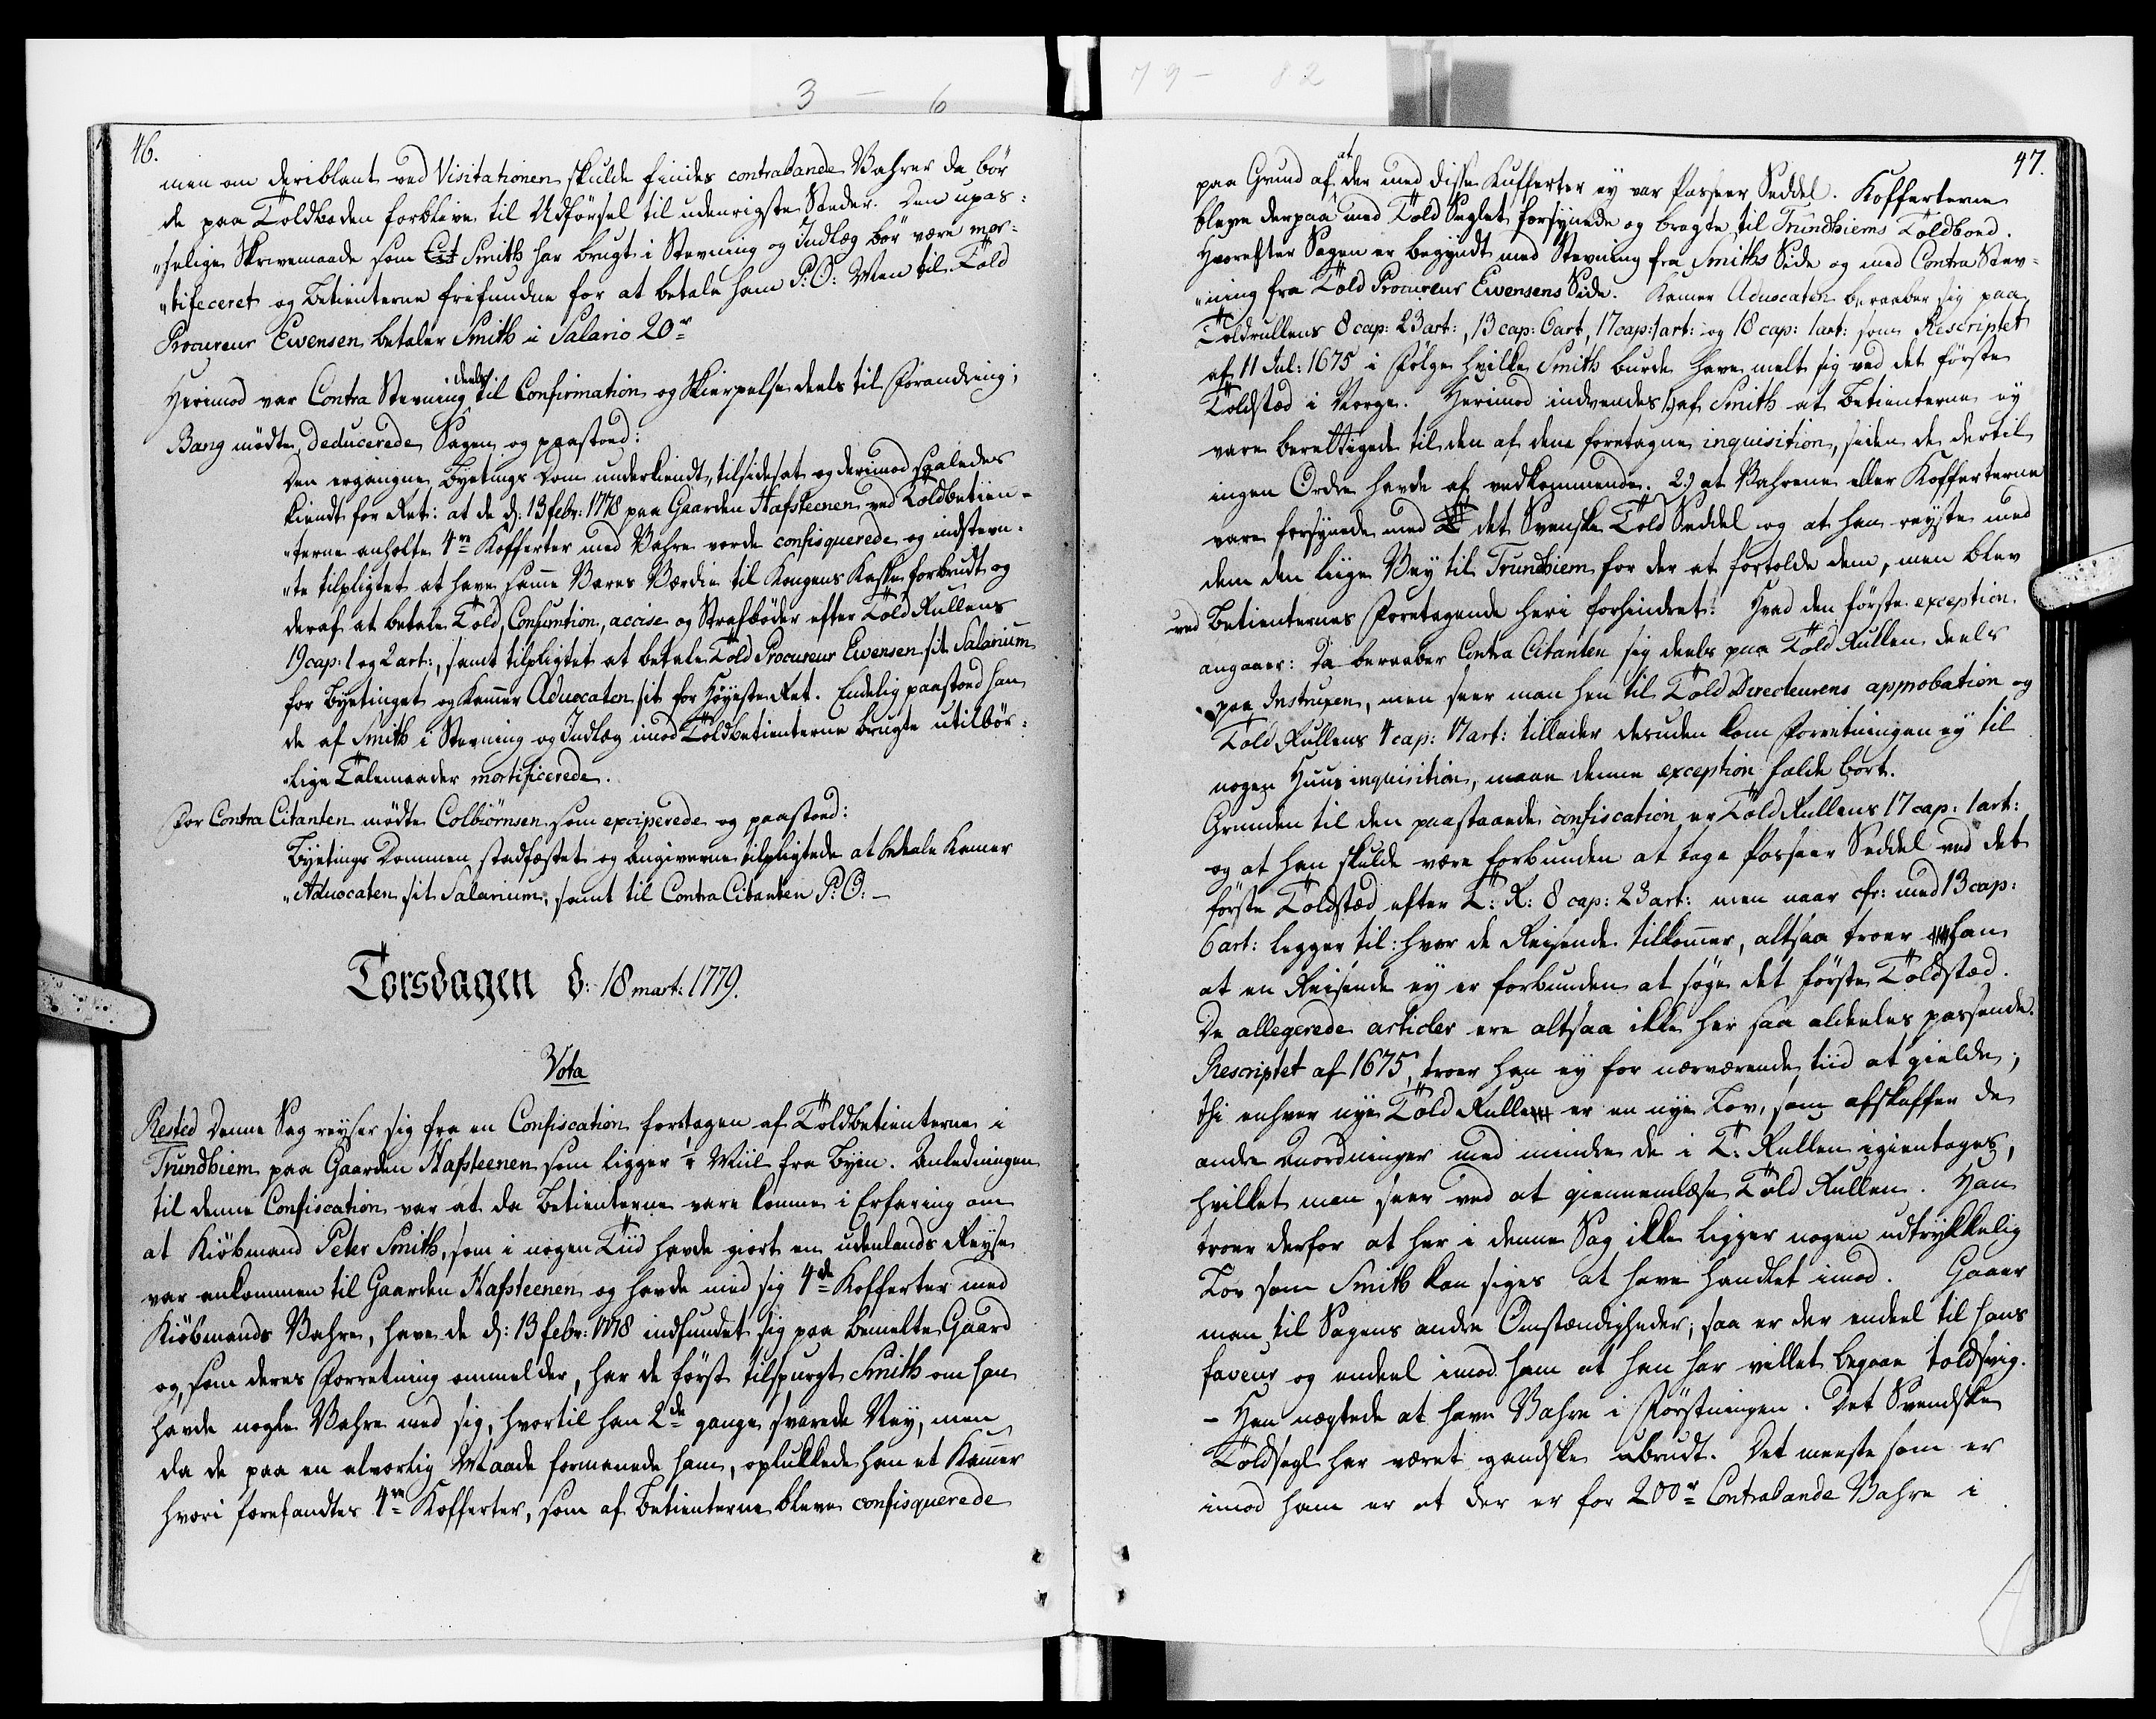 3 - 6
79 - 82
46.
men om deriblant ved Visitationen skulde findes contrabande Vahrer da bör
de paa Toldboden forblive til Udförsel til udenrigste Steder. Den upas:
„selige Skrivemaade som Cit Smith har brugt i Stevning og Indlæg bör være mor:
„tificeret og Betienterne frifundne for at betale ham P: O: Men til Told
Procureur Ewensen betaler Smith i Salario 20 rd
Herimod var Contra Stevning deels til Confirmation og Skierpelse deels til Forandring;
Bang mödte, deducerede Sagen og paastoed:
Den ergangne Byetings Dom underkiendt, tilsidesat og derimod saaledes
kiendt for Ret: at de d: 13 febr: 1778 paa Gaarden Hafsteenen ved Toldbetien-
„terne anholte 4re Kofferter med Vahre vorde confisquerede og indstevn-
„te tilpligtet at have samme Vares Værdie til Kongens Kasse forbrudt og
deraf at betale Told, Consumtion, accise og Strafböder efter Told Rullens
19 cap: 1 og 2 art:, samt tilpligtet at betale Told Procureur Ewensen sit Salarium
for Byetinget og Kammer Advocaten sit for HöyesteRet. Endelig paastoed han
de af Smith i Stevning og Indlæg imod Toldbetienterne brugte utilbör:
„lige Talemaader mortificerede.
For Contra Citanten mödte Colbiörnsen som exciperede og paastoed:
Byetings Dommen stadfæstet og Angiverne tilpligtede at betale Kamer
„Advocaten sit Salarium, samt til Contra Citanten P: O: -
Torsdagen d: 18 mart: 1779.
Vota
Rested Denne Sag reyser sig fra en Confiscation foretagen af Toldbetienterne i
Trundhiem paa Gaarden Hafsteenen som ligger Miil fra Byen. Anledningen
til denne Confiscation var at da Betienterne vare komne i Erfaring om
at Kiöbmand Peter Smith, som i nogen Tiid havde giort en udenlands Reyse
var ankommen til Gaarden Hafsteenen og havde med sig 4de Kofferter med
Kiöbmands Vahre, have de d: 13 febr: 1778 indfundet sig paa bemelte Gaard
og, som deres Forretning ommelder, har de först tilspurgt Smith om han
havde nogle Vahre med sig, hvortil han 2de gange svarede Ney, men
da de paa en alvorlig Maade formanede ham, oplukkede han et Kammer
hvori forefandtes 4re Kofferter, som af Betienterne bleve confisquerede
47.
paa Grund af at der med disse Kufferter ey var Passeer Seddel. Kofferterne
bleve derpaa med Told Seglet forsynede og bragte til Trundhiems Toldboed.
Hvorefter Sagen er begyndt med Stevning fra Smiths Side og med Contra Stev-
„ning fra Told Procureur Ewensens Side. Kamer Advocaten beraaber sig paa
Toldrullens 8 cap: 23 art:, 13 cap: 6 art, 17 cap: 1 art: og 18 cap: 1 art: som Rescriptet
af 11 Jul: 1675 i Fölge hvilke Smith burde have melt sig ved det förste
Toldsted i Norge. Herimod indvendes 1) af Smith at Betienterne ey
vare berettigede til den af dem foretagne inquisition, siden de dertil
ingen Ordre havde af vedkommende. 2) at Vahrene eller Kofferterne
vare forsynede med det Svenske Told Seddel og at han reyste med
dem den liige Vey til Trundhiem for der at fortolde dem, men blev
ved Betienternes Foretagende heri forhindret. Hvad den förste exception
angaaer: Da beraaber Contra Citanten sig deels paa Told Rullen deels
paa Instruxen, men seer man hen til Told Directeurens approbation og
Told Rullens 4 cap: 17 art: tillader desuden kom Forretningen ey til
nogen Huus inquisition, maae denne exception falde bort.
Grunden til den paastaaende confiscation er Told Rullens 17 cap: 1 art:
og at han skulde være forbunden at tage Passeer Seddel ved det
förste Toldsted efter T: R: 8 cap: 23 art: men naar cfr: med 13 cap:
6 art: legger til: hvor de Reisende tilkommer, altsaa troer han
at en Reisende ey er forbunden at söge det förste Toldsted.
De allegerede articler ere altsaa ikke her saa aldeeles passende.
Rescriptet af 1675, troer han ey for nærværende tiid at gielde;
thi enhver nye Told Rulle er en nye Lov, som afskaffer de
andre Anordninger med mindre de i T: Rullen igientages,
hvilket man seer ved at giennemlæse Told Rullen. Han
troer derfor at her i denne Sag ikke ligger nogen udtrykkelig
Lov som Smith kan siges at have handlet imod. Gaaer
man til Sagens andre Omstændigheder; saa er der endeel til hans
faveur og endeel imod ham at han har villet begaae toldsvig.
- Han negtede at have Vahre i Förstningen. Det Svendske
Toldsegl har været gandske ubrudt. Det meeste som er
imod ham er at der er for 200 rd Contrabande Vahre i